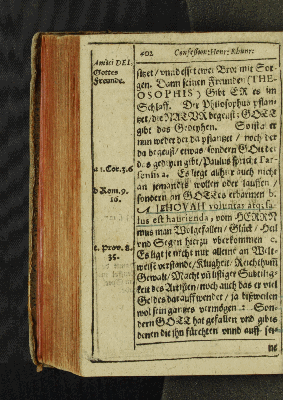 402 Confession: Henr: Khunr:
Amici DEI.
Gottes
Freunde.
sitzet / vnd esset ewer Brot mit Sor-
gen. Dann seinen Freunden (THE-
OSOPHIS) Gibt ER es im
Schlaff. Der Philosophus pflan-
tzet / die NATVR begeust: GOTT
gibt das Gedeyhen. So ist er
nun weder der da pflantzet / noch der
da begeust / etwas sondern GOtt der
das gedeyen gibt / Paulus spricht
a 1. Cor. 3. 6
a. Es liegt auch nicht
an jemands wollen oder lauffen /
sondern an GOTTes erbarmen b.
b Rom. 9.
16.
A JEHOVAH voluntas
lus est haurienda, vom HERRN
mus man Wolgefallen / Glück / Heil
vnd Segen hierzu vberkommen c.
c. Prov. 8.
35.
Es ligt je nicht nur alleine an Welt-
weise verstande / Klugheit / Reichthum
Gewalt / Macht
keit des Artisten / noch auch das er viel
Geldes darauff wendet / ja bisweilen
wol sein gantzes vermögen: Son-
dern GOTT hat gefallen vnd gibts
denen die jhn fürchten vnnd auff sei-
ne